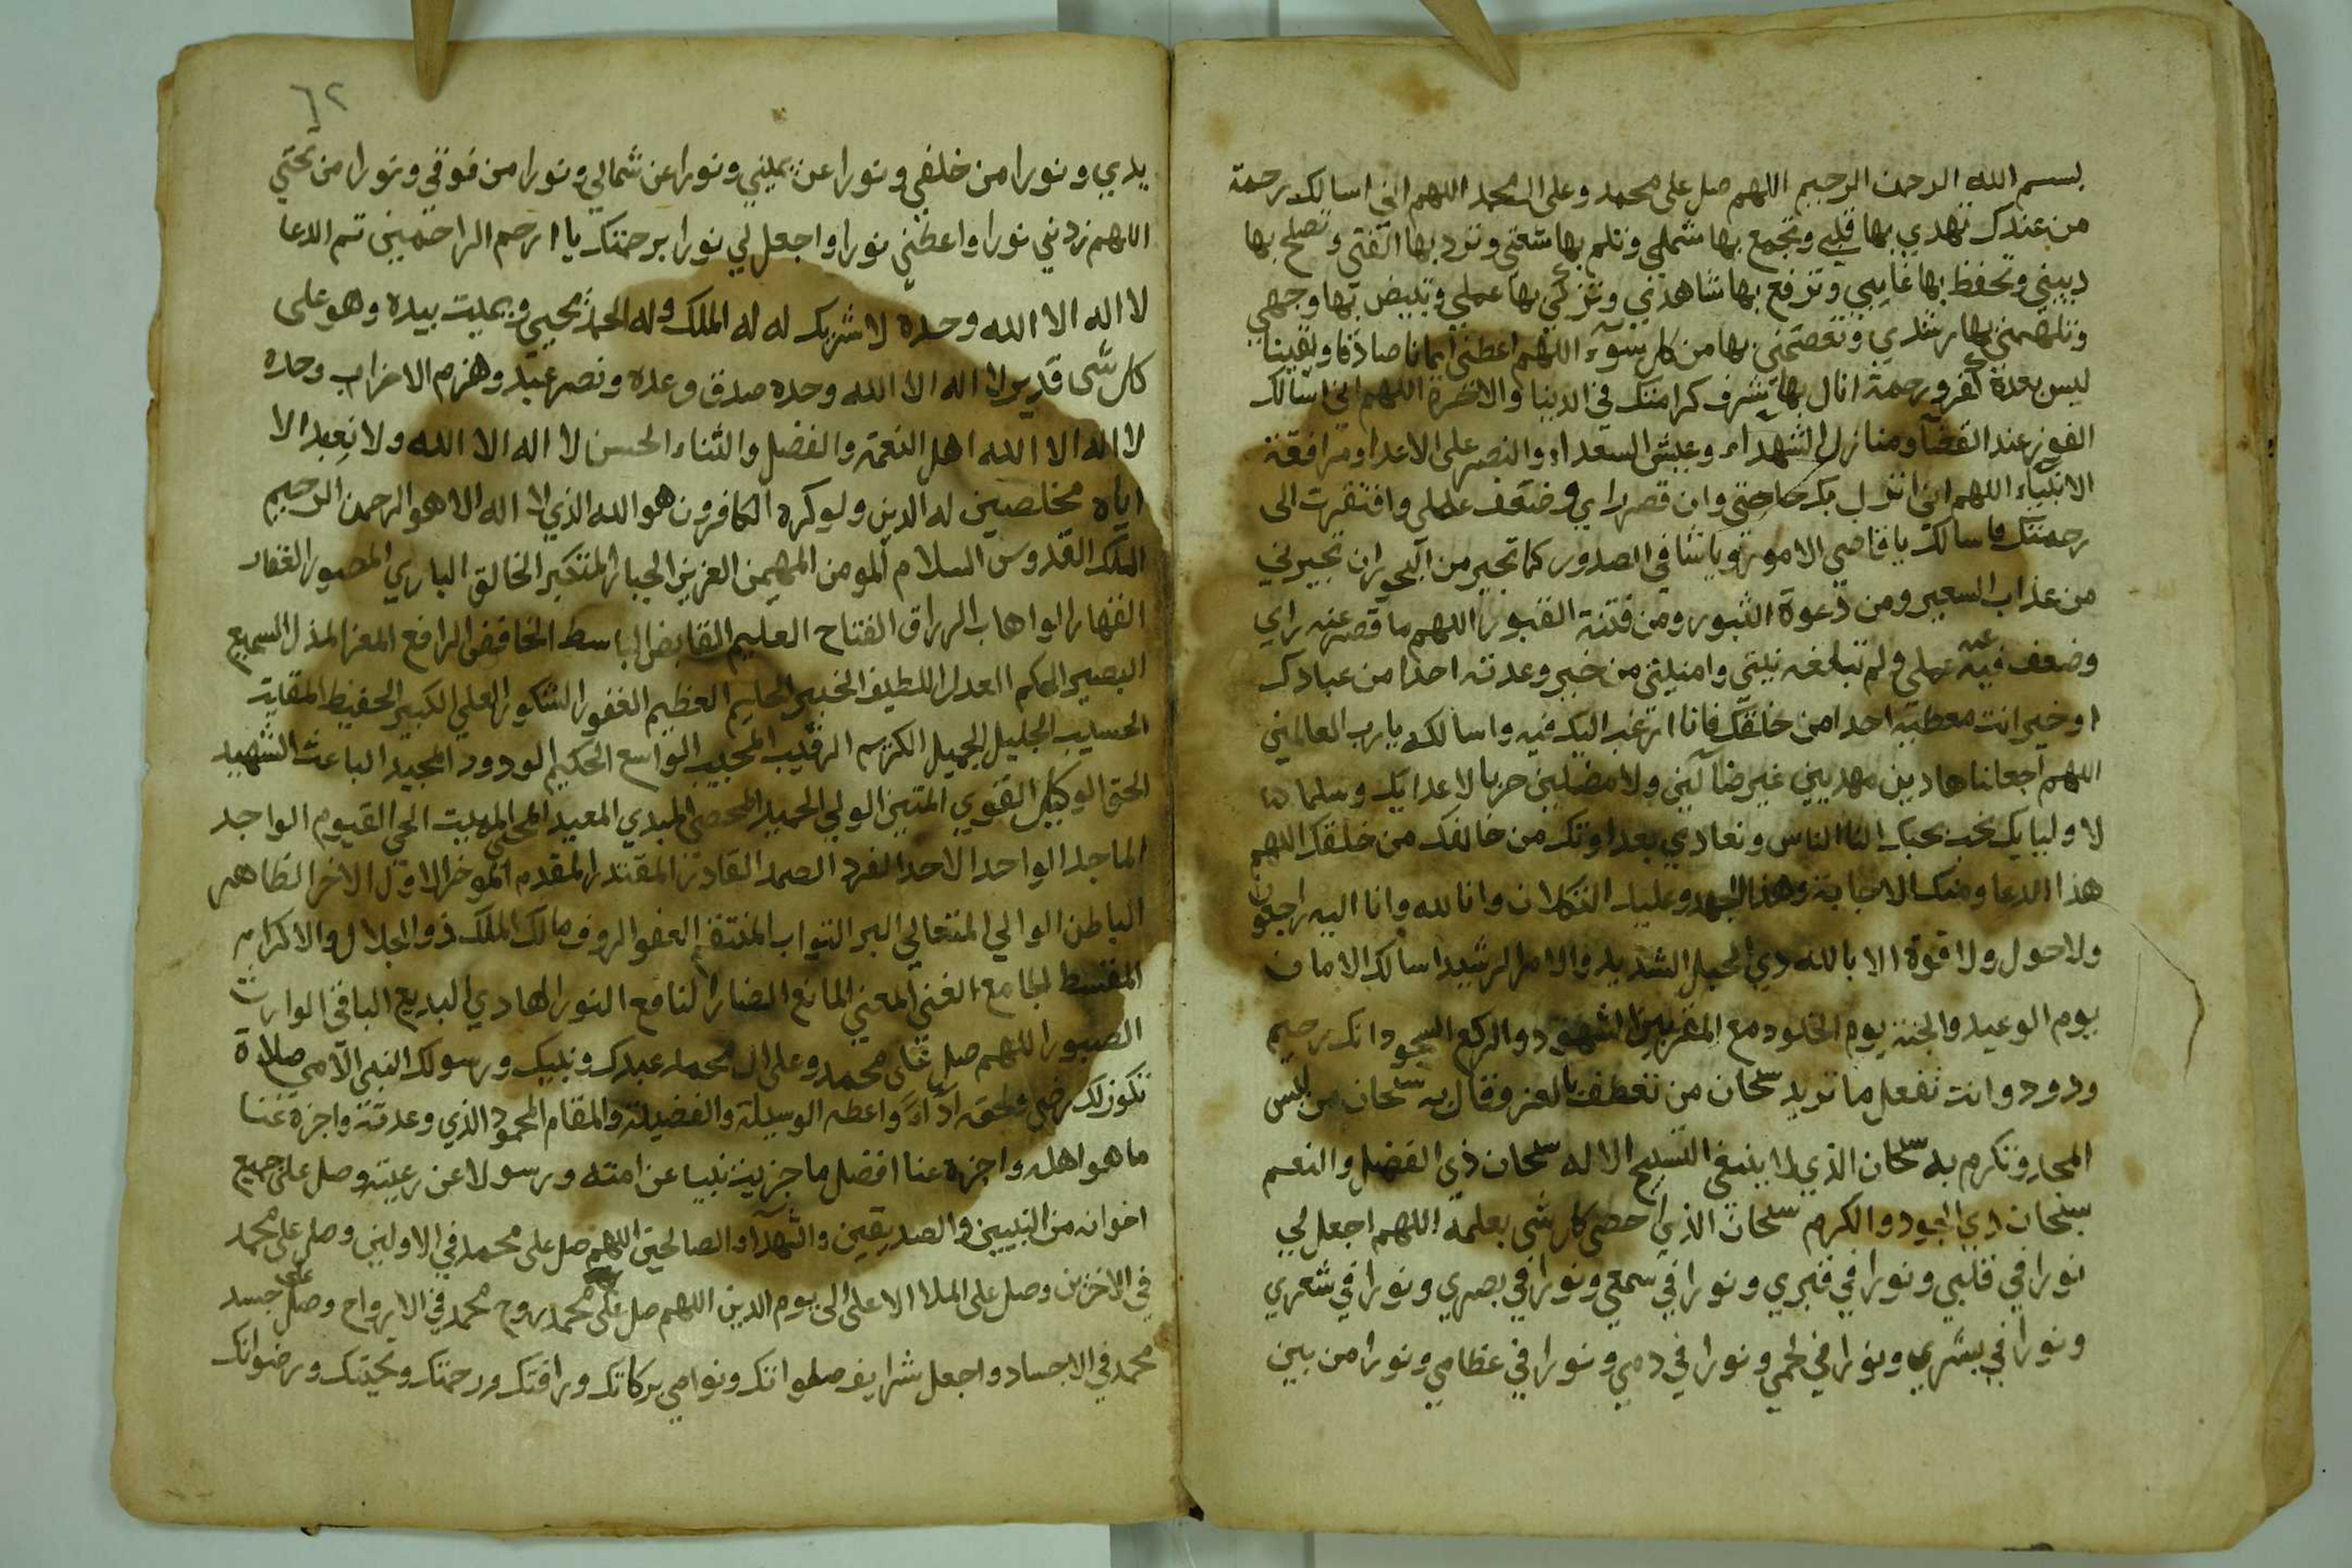 بسم الله الرحمن الرحيم اللهم صل على محمد وعلى ال محمد اللهم اني اسالك رحمة
من عندك تهدي بها قلبي وتجمع بها شملي وتلم بها شعثي وترد بها الفتي وتصلح بها
ديني وتحفظ بها غايبي وترفع بها شاهدي وتزكي بها عملي وتبيض بها وجهي
وتلهمني بها رشدي وتعصمني بها من كل سوء اللهم اعطني ايمانا صادقا ويقينا
ليس بعده كفر ورحمة انال بها شرف كرامتك في الدنيا والاخرة اللهم اني اسالك
الفوز عند القضآ ومنازل الشهداء وعيش السعداء والنصر على الاعدا ومرافقة
الانبياء اللهم اني انزل بك حاجتي وان قصر رايي وضعف عملي وافتقرت الى
رحمتك فاسالك يا قاضي الامور ويا شافي الصدور كما تجير من البحور ان تجيرني
من عذاب السعير ومن دعوة الثبور ومن فتنة القبور اللهم ما قصر عنه رايي
وضعف فيه عنه عملي ولم تبلغه نيتي وامنيتي من خير وعدته احدا من عبادك
او خير انت معطيه احدا من خلقك فانا ارغب اليك فيه واسالك يا رب العالمين
اللهم اجعلنا هادين مهديين غير ضآلين ولا مضلين حربا لاعدايك وسلما
لاوليايك نحب بحبك الناس ونعادي بعداوتك من خالفك من خلقك اللهم
هذا الدعا ومنك الاجابة وهذا الجهد وعليك التكلان وانا لله وانا اليه راجعون
ولا حول ولا قوة الا بالله ذي الحبل الشديد والامر الرشيد اسالك الامان
يوم الوعيد والجنة يوم الخلود مع المقربين الشهود والركع السجود انك رحيم
ودود وانت تفعل ما تريد سبحان من تعطف بالعز وقال به سبحان من لبس
المجد وتكرم به سبحان الذي لا ينبغي التسبيح الا له سبحان ذي الفضل والنعم
سبحان ذي الجود والكرم سبحان الذي احصى كل شي بعلمه اللهم اجعل لي
نورا في قلبي ونورا في قبري ونورا في سمعي ونورا في بصري ونورا في شعري
ونورا في بشري ونورا في لحمي ونورا في دمي ونورا في عظامي ونورا من بين
٦٢
يدي ونورا من خلفي ونورا عن يميني ونورا عن شمالي ونورا من فوقي ونورا من تحتي
اللهم زدني نورا واعطني نورا واجعل لي نورا برحمتك يا ارحم الراحمين تم الدعا
لا اله الا الله وحده لا شريك له له الملك وله الحمد يحيي ويميت بيده وهو على
كل شى قدير لا اله الا الله وحده صدق وعده ونصر عبده وهزم الاحزاب وحده
لا اله الا الله اهل النعمة والفضل والثناء الحسن لا اله الا الله ولا نعبد الا
اياه مخلصين له الدين ولو كره الكافرون هو الله الذي لا اله الا هو الرحمن الرحيم
الملك القدوس السلام المومن المهيمن العزيز الجبار المتكبر الخالق الباري المصور الغفار
القهار الواهاب الرزاق الفتاح العليم القابض الباسط الخافض الرافع المعز المذل السميع
البصير الحكم العدل اللطيف الخبير الحليم العظيم الغفور الشكور العلي الكبير الحفيظ المقيت
الحسيب الجليل الجميل الكريم الرقيب المجيب الواسع الحكيم الودود المجيد الباعث الشهيد
الحق الوكيل القوي المتين الولي الحميد المحصي المبدي المعيد المحي المميت الحي القيوم الواجد
الماجد الواحد الاحد الفرد الصمد القادر المقتدر المقدم الموخر الاول الاخر الظاهر
الباطن الوالي المتعالي البر التواب المنتقم العفو الروف مالك الملك ذو الجلال والاكرام
المقسط الجامع الغني المغني المانع الضار النافع النور الهادي البديع الباقي الوارث
الصبور اللهم صل على محمد وعلى ال محمد عبدك ونبيك ورسولك النبي الامي صلاة
تكون لك رضى ولحقه اداءً واعطه الوسيلة والفضيلة والمقام المحمود الذي وعدته واجزه عنا
ما هو اهله واجزه عنا افضل ما جزيت نبيا عن امته ورسولا عن رعيته وصل على جميع
اخوانه من النبيين والصديقين والشهدآء والصالحين اللهم صل على محمد في الاولين وصل على محمد
في الاخرين وصل على الملا الاعلى الى يوم الدين اللهم صل على روح محمد في الارواح وصل على جسد
محمد في الاجساد واجعل شرايف صلواتك ونوامي بركاتك ورافتك ورحمتك وتحيتك ورضوانك